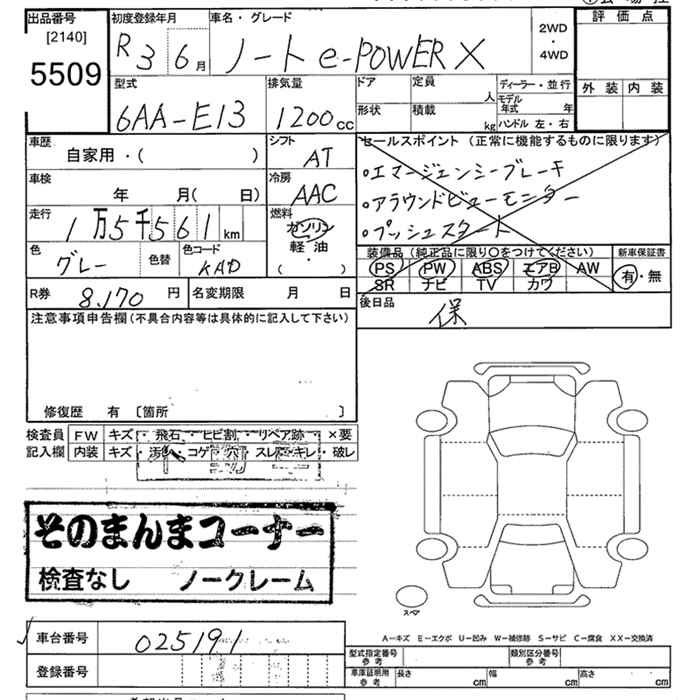 出品番号 初度登録年月 車名・グレード 評価点
[2140]
5509
R3 6月 ノートe-POWER X 2WD・4WD
外装 内装
型式 排気量 ドア 定員 人 ディーラー・並行
6AA-E13 1200cc 形状 積載 kg モデル年式 年
ハンドル 左・右
車歴 シフト セールスポイント (正常に機能するものに限ります)
自家用・( ) AT ・エマージェンシーブレーキ
車検 冷房 ・アラウンドビューモニター
年 月( 日) AAC ・プッシュスタート
走行 燃料
1万5千561km ガソリン
軽油
・
( )
色 色替 色コード 装備品(純正品に限り〇をつけてください) 新車保証書
グレー KAD PS PW ABS エアB AW 有・無
SR ナビ TV カワ
R券 8,170円 名変期限 月 日 後日品
保
注意事項申告欄(不具合内容等は具体的に記入して下さい)
修復歴 有 〔箇所 〕
検査員 FW キズ・飛石・ヒビ割・リペア跡・×要
記入欄 内装 キズ・汚れ・コゲ・穴・スレ・キレ・破レ
そのまんまコーナー
検査なし ノークレーム
スペア
A―キズ E―エクボ U―凹み W―補修跡 S―サビ C―腐食 XX―交換済
車台番号 025191
型式指定番号 参考 類別区分番号 参考
登録番号 車庫証明用 参考 長さ cm 幅 cm 高さ cm